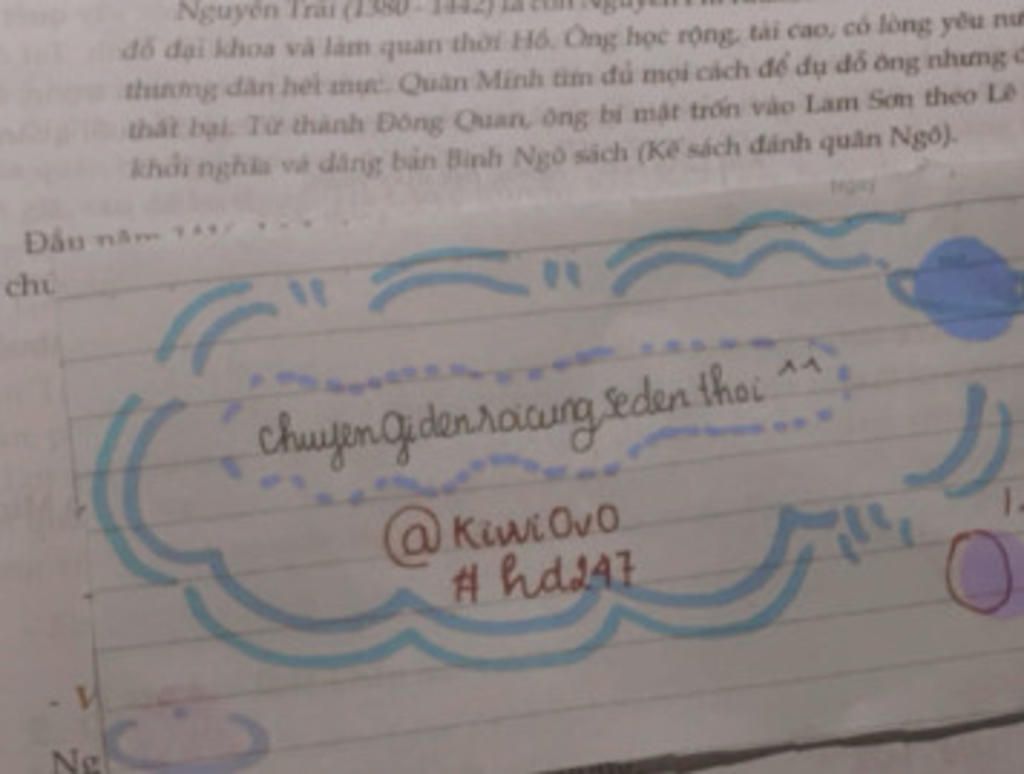 Nguyễn Trãi (1380 - 1442) là con Nguyễn Phi
đỗ đại khoa và làm quan thời Hồ. Ông học rộng, tài cao, có lòng yêu nướ
thương dân hết mực. Quân Minh tìm đủ mọi cách để dụ dỗ ông nhưng đ
thất bại. Từ thành Đông Quan, ông bí mật trốn vào Lam Sơn theo Lê
khởi nghĩa và dâng bản Bình Ngô sách (Kế sách đánh quân Ngô).
Ngày
Đầu năm
chú
chuyengidenroicungsedenthoi ^^
@Kiwi0v0
#hd247
1.
- V
Ng